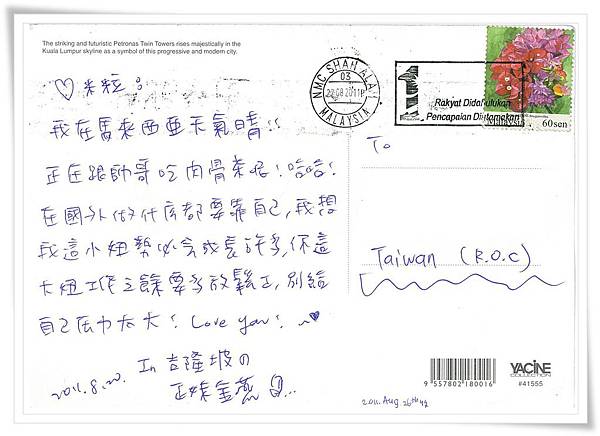 The striking and futuristic Petronas Twin Towers rises majestically in the
Kuala Lumpur skyline as a symbol of this progressive and modern city.
♡米粒:
我在馬來西亞天氣晴!!
正在跟帥哥吃肉骨茶喔!哈哈!
在國外做什麼都要靠自己,我想
我這小妞勢必會成長許多,你這
大妞工作之餘要多放鬆ㄛ,別給
自己压力太大! Love you! ~♥
In 吉隆坡の
正妹金燕
2011.8.22.
NMC SHAH ALAM
03
22 08 2011
MALAYSIA
1
Rakyat Didahulukan
Pencapaian Diutamakan
Malaysia
60sen
To
Taiwan (R.O.C)
9 557802 180016
YACINE
COLLECTION
#41555
2011. Aug. 26th